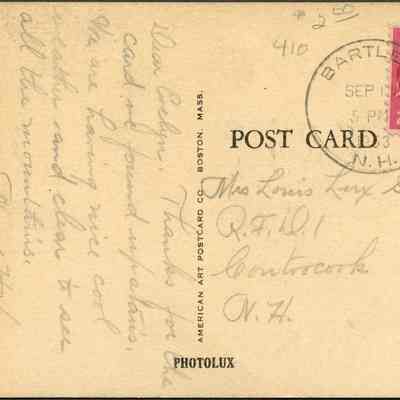 # 2 50
410
Dear Evelyn: Thanks for the
card we found upstairs.
We are having nice cool
weather and clear to see
all the mountains.
AMERICAN ART POSTCARD CO. BOSTON, MASS.
POST CARD
BARTLE
SEP 1
5 PM
N.H.
Mrs Louis
R.F.D. 1
Contoocook
N.H.
PHOTOLUX